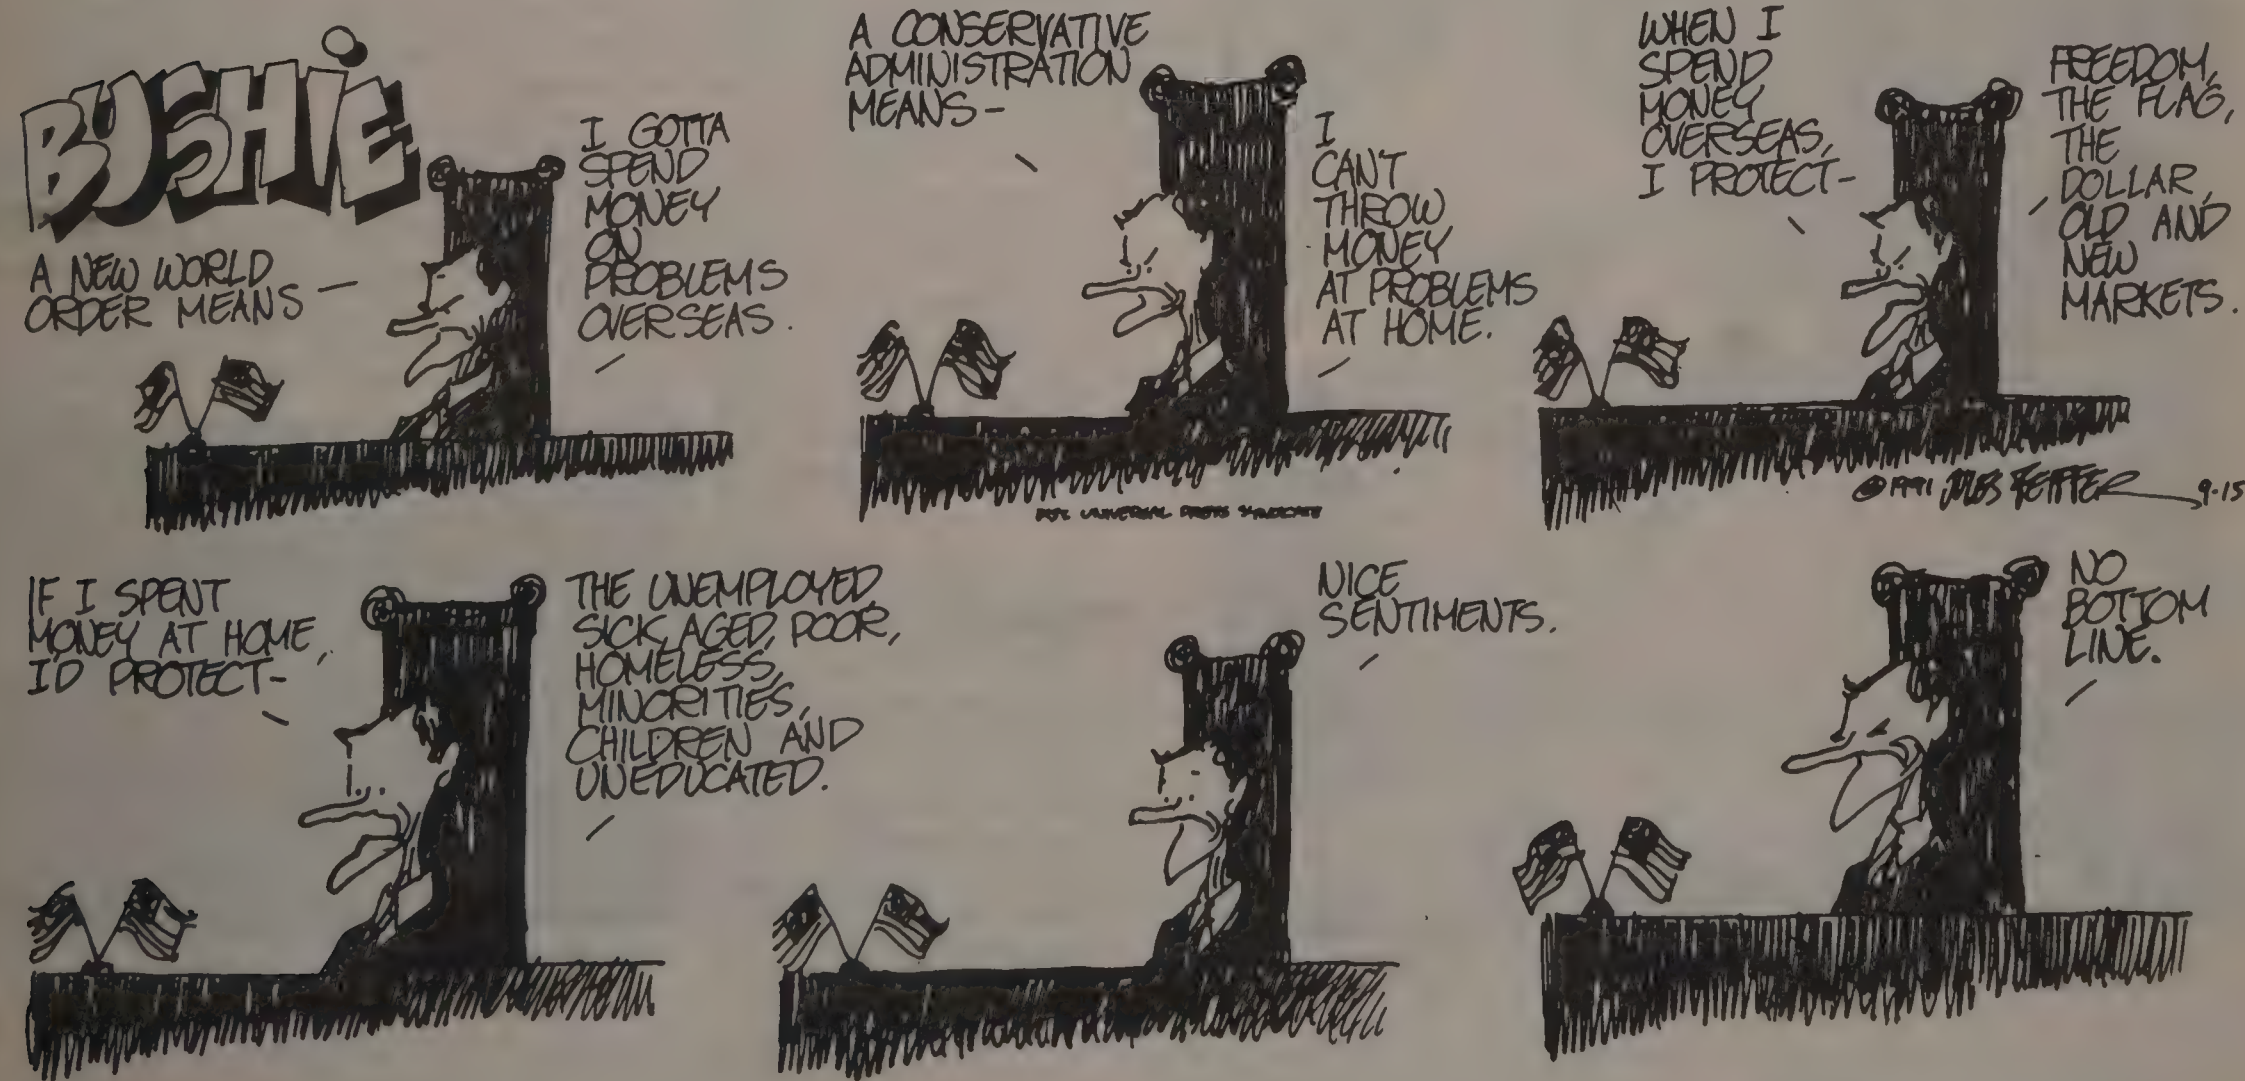 BUSHIE
A NEW WORLD
ORDER MEANS
I GOTTA
SPEND
MONEY
ON
PROBLEMS
OVERSEAS.
A CONSERVATIVE
ADMINISTRATION
MEANS-
I
CAN'T
THROW
MONEY
AT PROBLEMS
AT HOME.
WHEN I
SPEND
MONEY
OVERSEAS,
I PROTECT-
FREEDOM,
THE FLAG,
THE
DOLLAR,
OLD AND
NEW
MARKETS.
UNIVERSAL PRESS SYNDICATE
©1991 JULES FEIFFER 9-15
IF I SPENT
MONEY AT HOME,
I'D PROTECT-
THE UNEMPLOYED,
SICK, AGED, POOR,
HOMELESS,
MINORITIES,
CHILDREN AND
UNEDUCATED.
NICE
SENTIMENTS.
NO
BOTTOM
LINE.